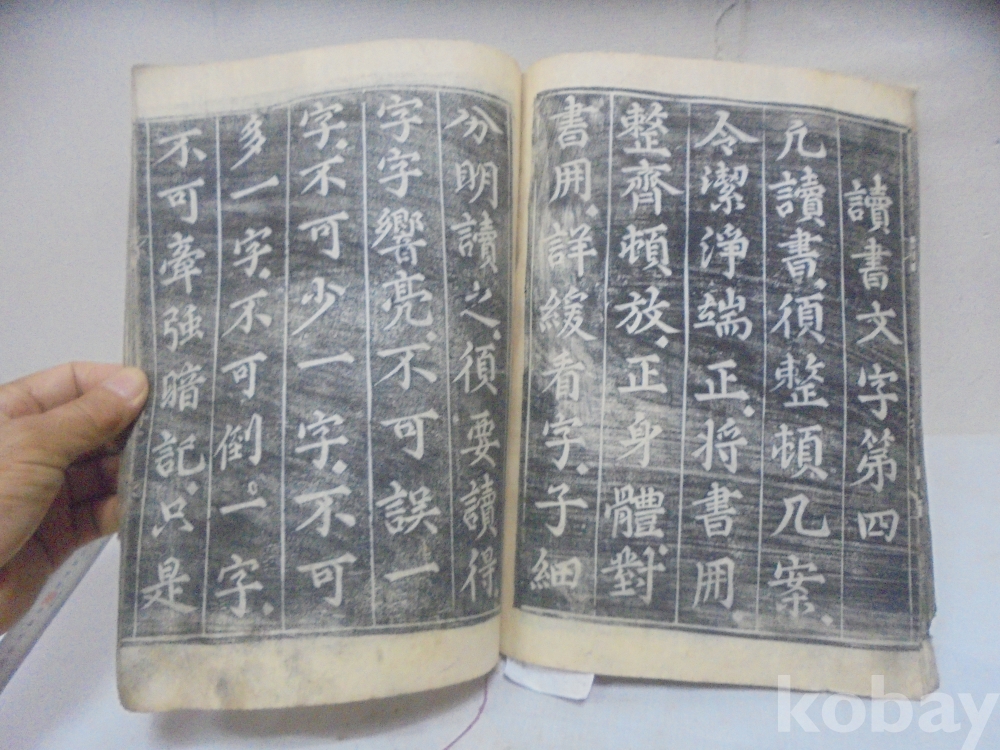 讀書文字第四
凡讀書。須整頓几案。
令潔淨端正。將書冊
整齊頓放。正身體對
書冊。詳緩看字。子細
分明讀之。須要讀得。
字字響亮。不可誤一
字。不可少一字。不可
多一字。不可倒。一字。
不可牽強暗記。只是
kobay